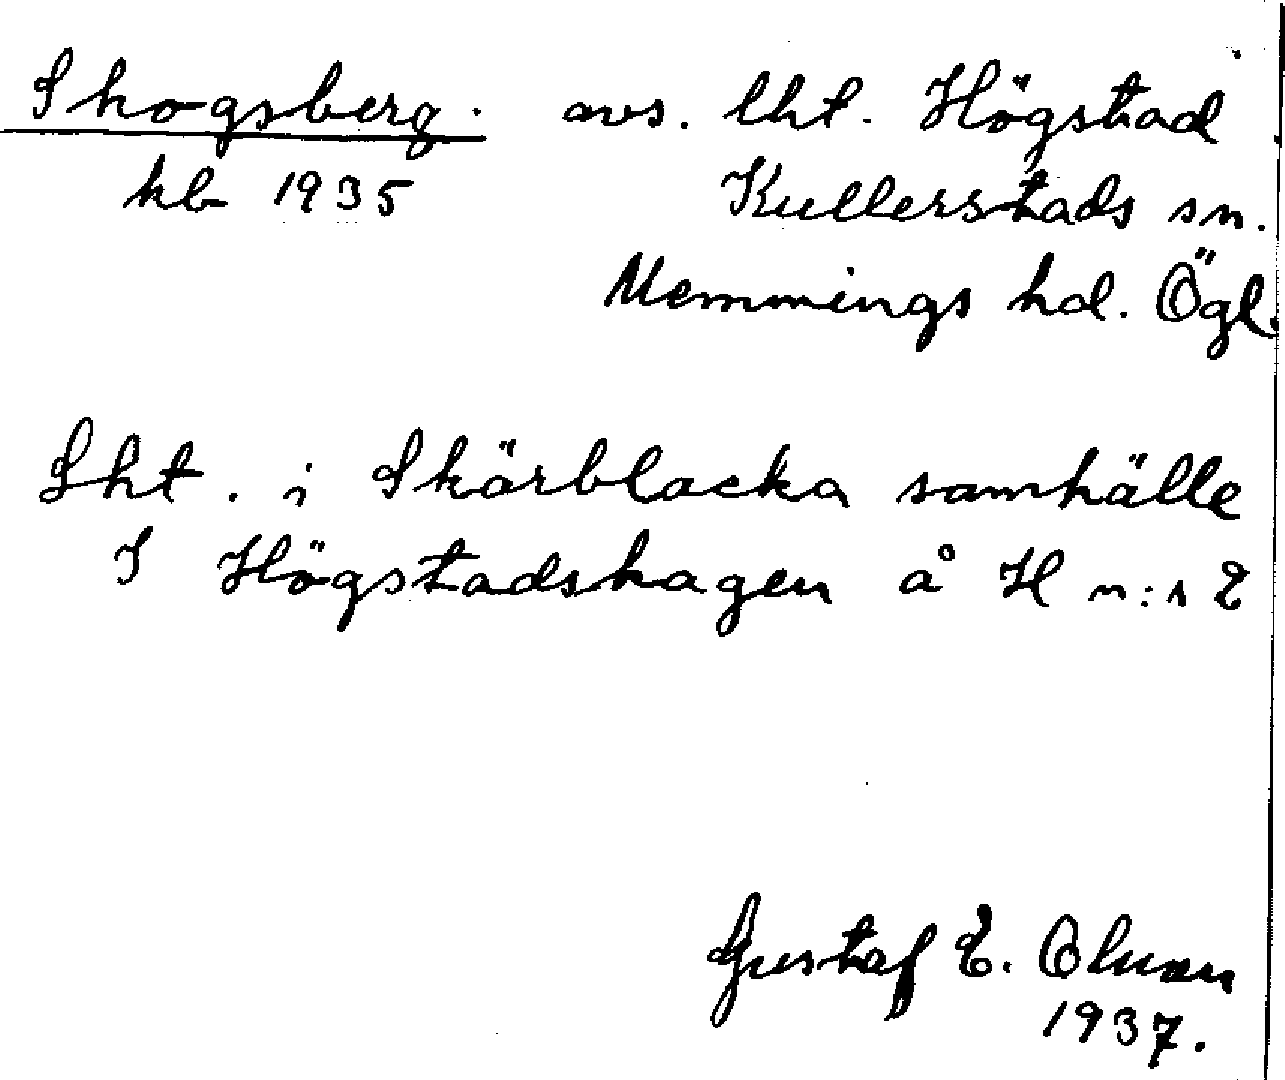 Skogsberg. avs. lht. Högstad
kb 1935 Kullerstads sn.
Memmings hd. Ögl.
Lht. i Skärblacka samhälle
I Högstadshagen å H n:s E
Gustaf E. Olsson
1937.